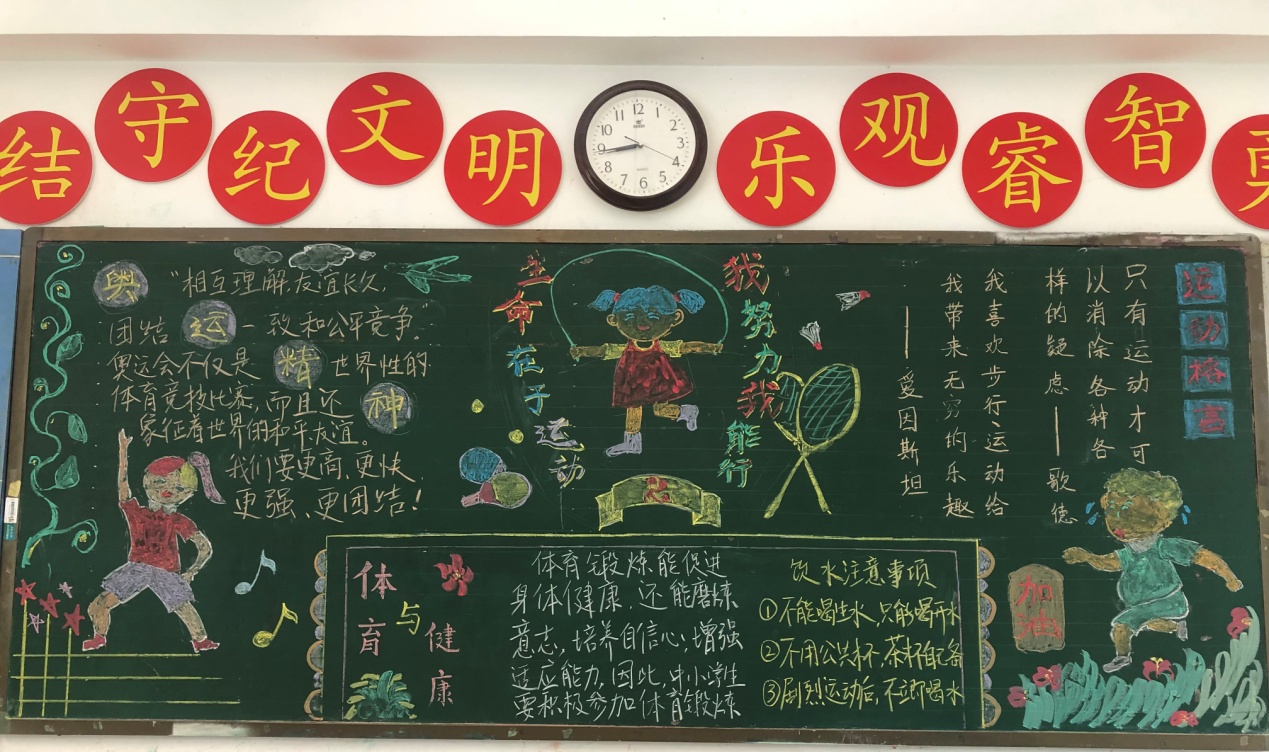 结守纪文明
12
2
3
4
5
6
7
8
9
10
乐观睿智勇
奥运精神
“相互理解,友谊长久,
团结一致和公平竞争”
奥运会不仅是世界性的
体育竞技比赛,而且还
象征着世界的和平友谊。
我们要更高、更快、
更强、更团结!
生命在于运动
我努力我能行
运动格言
只有运动才可
以消除各种各
样的疑虑——歌德
我喜欢步行运动给
我带来无穷的乐趣
——爱因斯坦
体育与健康
体育锻炼能促进
身体健康,还能磨炼
意志,培养自信心,增强
适应能力,因此,中小学生
要积极参加体育锻炼
饮水注意事项
①不能喝生水,只能喝开水
②不用公共杯,茶杯自备
③剧烈运动后,不立即喝水
加油